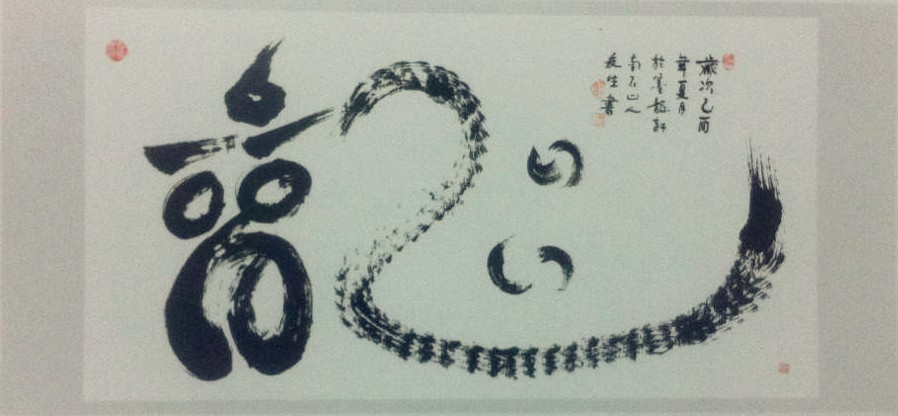 龍
歲次乙酉
年夏月
於墨龍軒
南石山人
生書